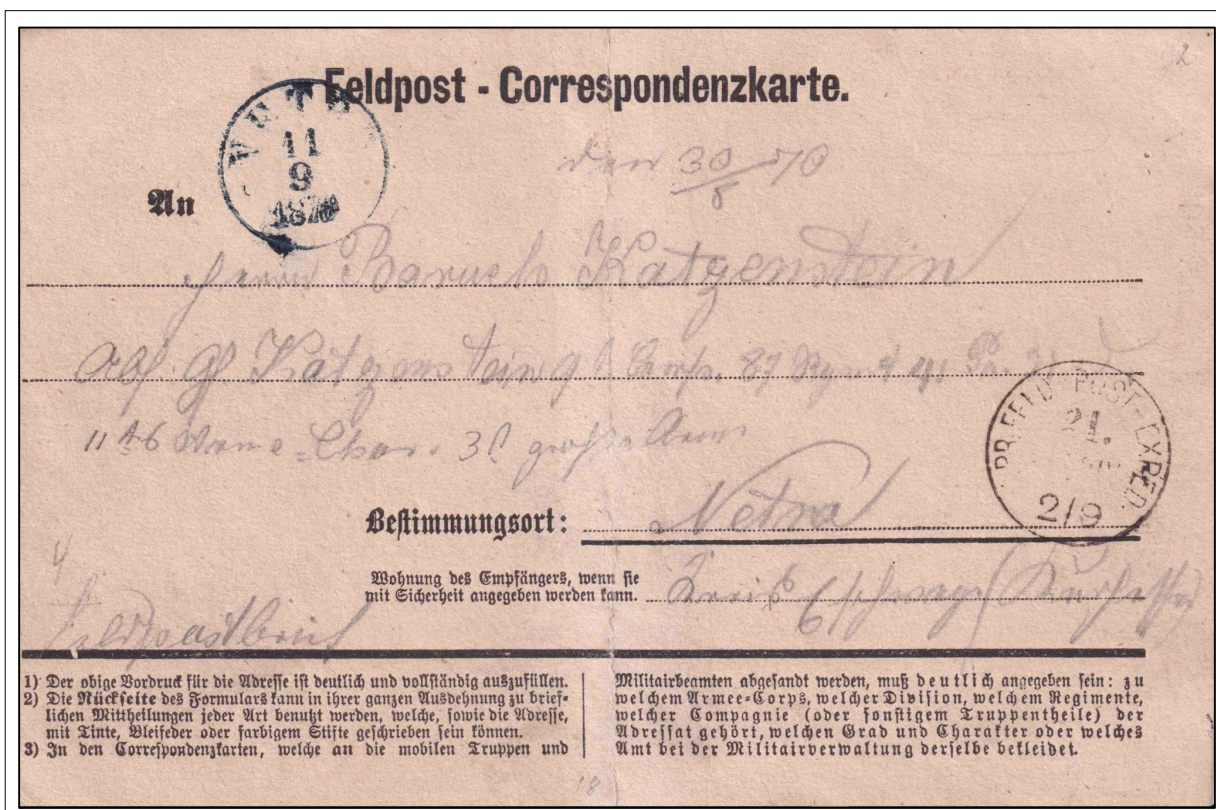 Feldpost - Correspondenzkarte.
NET
11
9
187
den 30/8 70
An
Herrn Baruch Katzenstein
Abs. Gf Katzenstein 9 Komp. 87 Rgmt 41
11 A 6 Arme-Chor. 3 große Arm
PR. FELD-POST-EXPED.
2/9
Bestimmungsort: Netra
Wohnung des Empfängers, wenn sie
mit Sicherheit angegeben werden kann. Kreis Eschwege Kurhessen
4
Feldpostbrief
1) Der obige Vordruck für die Adresse ist deutlich und vollständig auszufüllen.
2) Die Rückseite des Formulars kann in ihrer ganzen Ausdehnung zu brief-
lichen Mittheilungen jeder Art benutzt werden, welche, sowie die Adresse,
mit Tinte, Bleifeder oder farbigem Stifte geschrieben sein können.
3) In den Correspondenzkarten, welche an die mobilen Truppen und
Militairbeamten abgesandt werden, muß deutlich angegeben sein: zu
welchem Armee-Corps, welcher Division, welchem Regimente,
welcher Compagnie (oder sonstigem Truppentheile) der
Adressat gehört, welchen Grad und Charakter oder welches
Amt bei der Militairverwaltung derselbe bekleidet.
18